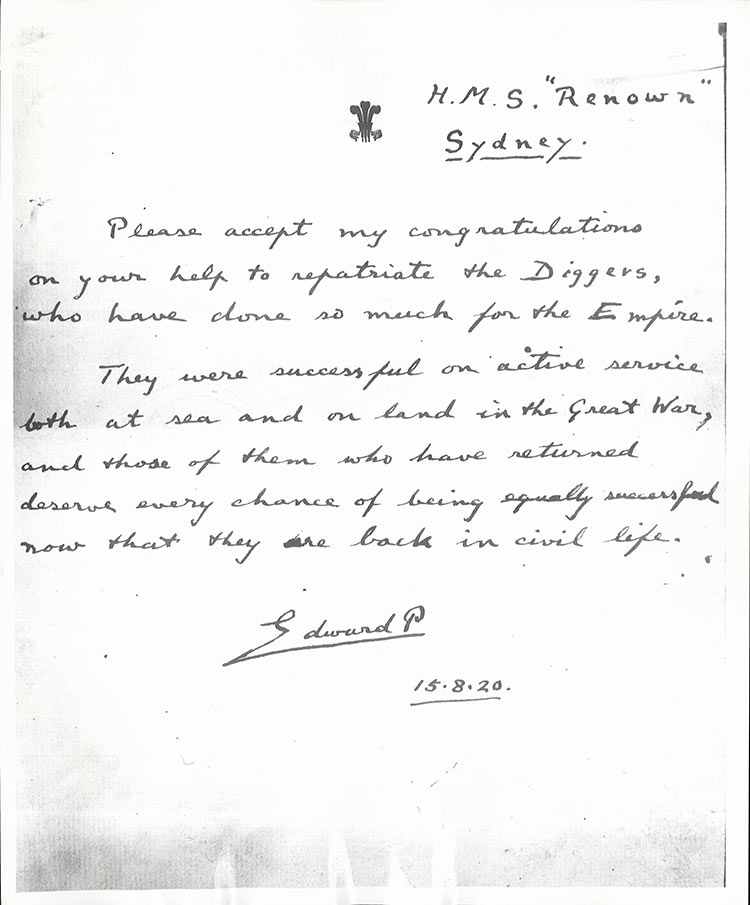 H.M.S. "Renown"
Sydney.
Please accept my congratulations
on your help to repatriate the Diggers,
who have done so much for the Empire.
They were successful on active service
both at sea and on land in the Great War,
and those of them who have returned
deserve every chance of being equally successful
now that they are back in civil life.
Edward P
15.8.20.